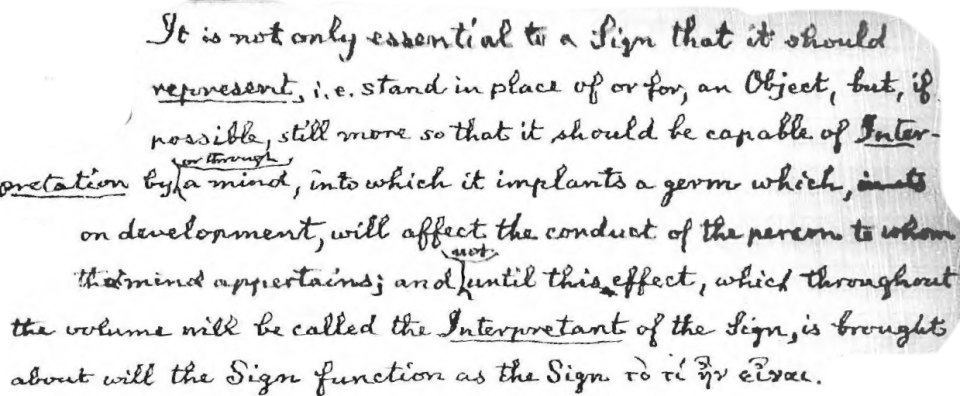 It is not only essential to a Sign that it should
represent, i.e. stand in place of or for, an Object, but, if
possible, still more so that it should be capable of Inter-
or through
pretation by a mind, into which it implants a germ which,
on development, will affect the conduct of the person to whom
not
the mind appertains; and until this effect, which throughout
the volume will be called the Interpretant of the Sign, is brought
about will the Sign function as the Sign τὸ τί ἦν εἶναι.